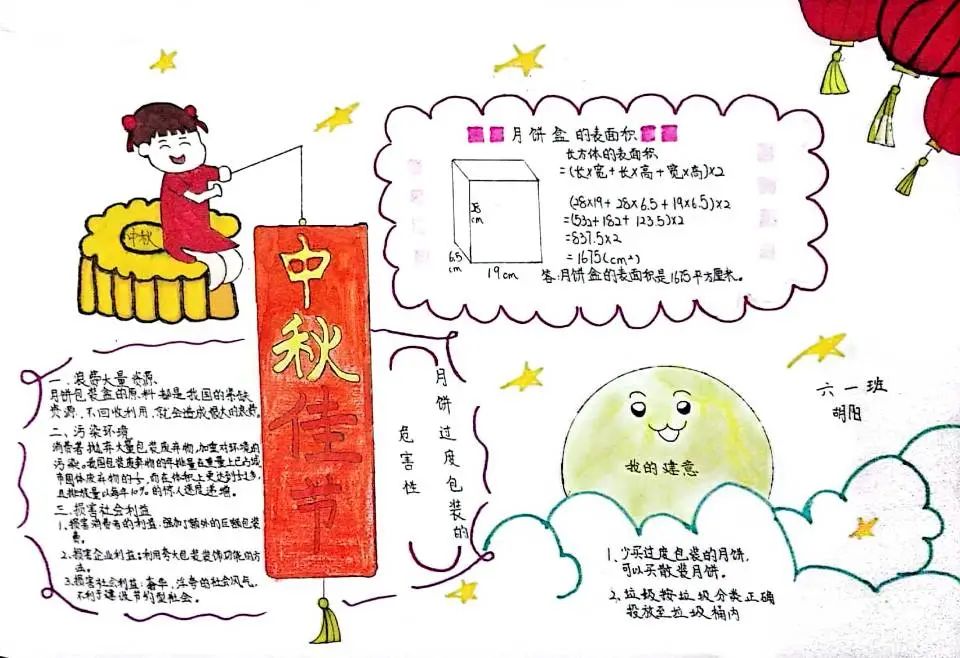 月饼盒的表面积
长方体的表面积
=(长×宽+长×高+宽×高)×2
(28×19+28×6.5+19×6.5)×2
=(532+182+123.5)×2
=837.5×2
=1675(cm²)
答:月饼盒的表面积是1675平方厘米。
28
cm
6.5
cm
19cm
中秋
中秋佳节
月饼过度包装的
危害性
一、浪费大量资源、
月饼包装盒的原料都是我国的紧缺
资源,不回收利用,就会造成极大的浪费。
二、污染环境
消费者抛弃大量包装废弃物,加重对环境的
污染。我国包装废弃物的年排量在重量上已占城
市固体废弃物的 而在体积上更达到
且排放量以每年10%的惊人速度递增。
三、损害社会利益
1、损害消费者的利益:强加了额外的 包装
费。
2、损害企业利益:利用夸大包装装饰 的方
法。
3、损害社会利益:奢华、浮夸的社会风气,
不利于建设节约型社会。
六一班
胡阳
我的建意
1、少买过度包装的月饼,
可以买散装月饼。
2、垃圾按垃圾分类正确
投放至垃圾桶内